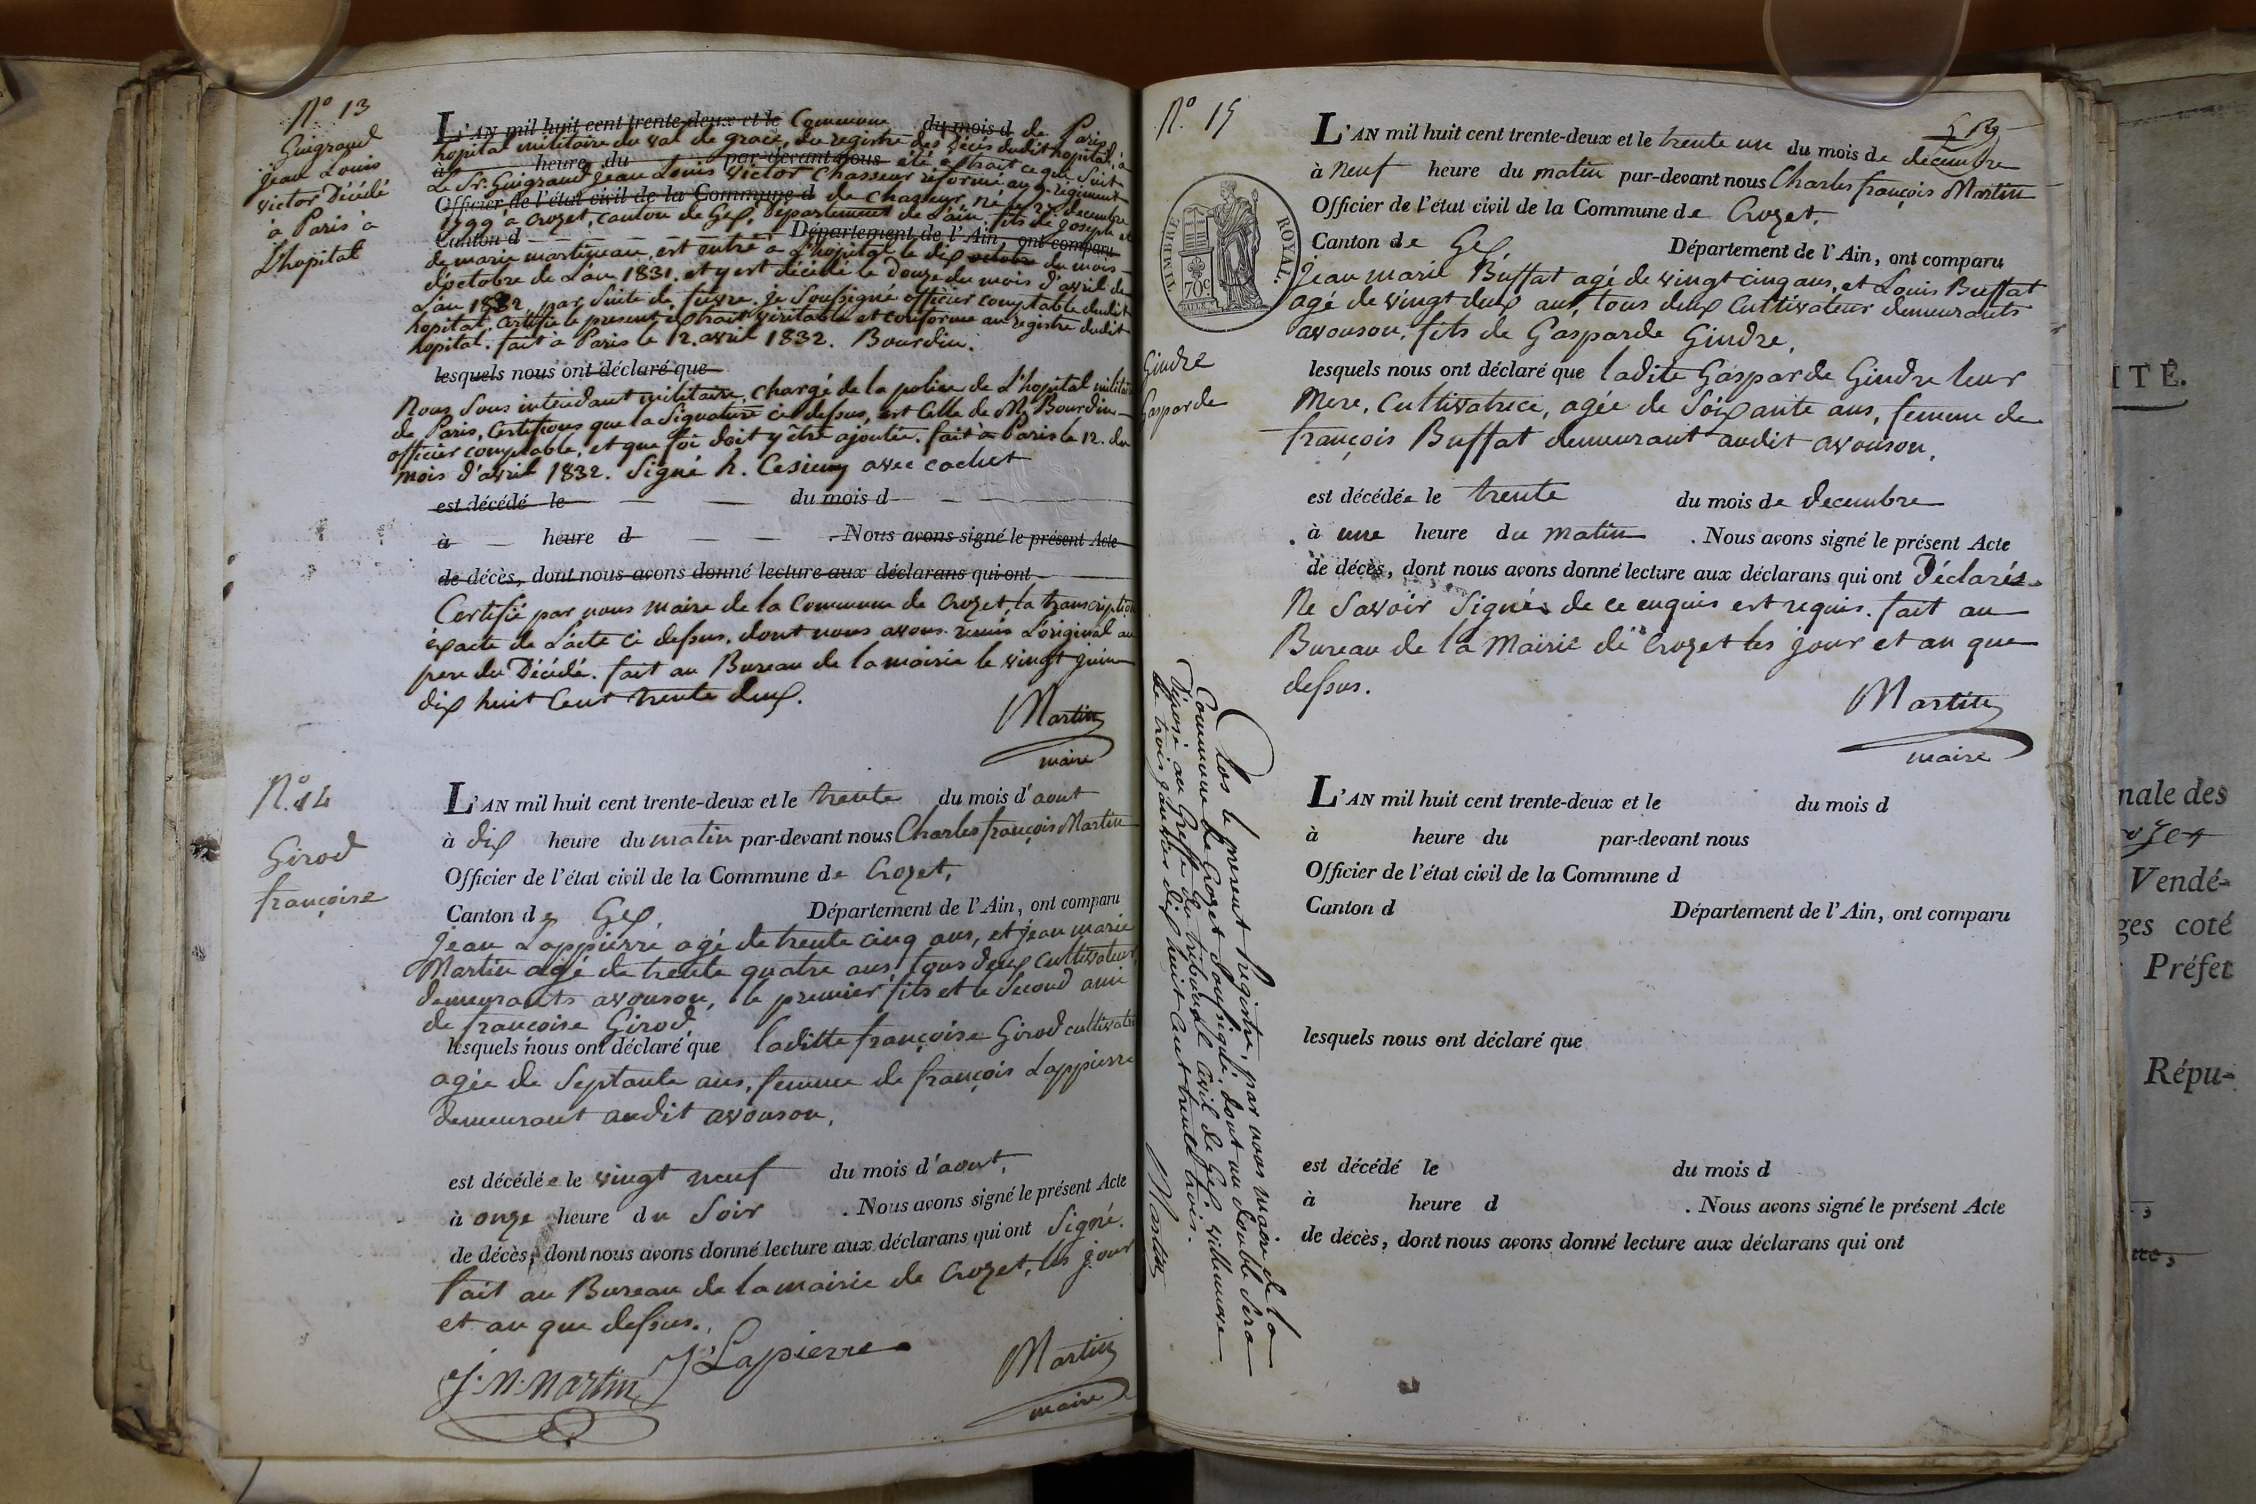 N° 13
Guigraud
jean Louis
victor Décédé
à Paris à
L'hopital
L'AN mil huit cent trente-deux et le Commune du mois d de Paris
hopital militaire du val de grace, du registre des Décès dudit hopital, a
à heure du par-devant nous été extrait ce qui suit
Le Sr. Guigraud jean Louis victor Chasseur réformé au 9e régiment
Officier de l'état civil de la Commune d de Chasseur, né le 25 decembre
1799 à Crozet, canton de Gex, Département de L'ain, fils de joseph et
Canton d Département de l'Ain, ont comparu
de marie martineau, est entré à L'hopital le dix octobre du mois
d'octobre de L'an 1831. et y est décédé le Douze du mois d'avril de
L'an 1832, par Suite de fièvre. je Soussigné officier comptable dudit
hopital. Certifie le present extrait véritable et conforme au registre dudit
hopital. fait à Paris le 12. avril 1832. Bourdin.
lesquels nous ont déclaré que
Nous Sous intendant militaire, chargé de la police de L'hopital militaire
de Paris, Certifions que la Signature ci dessus, est Celle de Mr. Bourdin
officier comptable, et que foi doit y être ajoutée. fait à Paris le 12. du
mois d'avril 1832. Signé h. avec cachet
est décédé le du mois d
à heure d . Nous avons signé le présent Acte
de décès, dont nous avons donné lecture aux déclarans qui ont
Certifié par nous maire de la Commune de Crozet, la transcription
éxacte de L'acte ci dessus. dont nous avons remis L'original au
pere du Décédé. fait au Bureau de la mairie le vingt juin
dix huit Cent trente deux.
Martin
maire
N° 14
Girod
françoise
L'AN mil huit cent trente-deux et le trente du mois d'aout
à dix heure du matin par-devant nous Charles françois Martin
Officier de l'état civil de la Commune de Crozet,
Canton de Gex, Département de l'Ain, ont comparu
jean Lappierre agé de trente cinq ans, et jean marie
Martin agé de trente quatre ans, tous deux cultivateurs
demeurants avouson, le premier fils et le Second ami
de françoise Girod,
lesquels nous ont déclaré que laditte françoise Girod cultivatrice
agée de Septante ans, femme de françois Lappierre
demeurant audit avouson,
est décédée le vingt neuf du mois d'aout,
à onze heure du Soir . Nous avons signé le présent Acte
de décès, dont nous avons donné lecture aux déclarans qui ont Signé.
fait au Bureau de la mairie de Crozet, les jour
et an que dessus.
J. M. Martin J Lapierre
Martin
maire
N° 15
TIMBRE ROYAL.
70c
Gindre
Gasparde
L'AN mil huit cent trente-deux et le trente un du mois de decembre
à Neuf heure du matin par-devant nous Charles françois Martin
Officier de l'état civil de la Commune de Crozet,
Canton de Gex, Département de l'Ain, ont comparu
jean marie Buffat agé de vingt cinq ans, et Louis Buffat
agé de vingt deux ans, tous deux Cultivateur demeurants
avouson, fils de Gasparde Gindre,
lesquels nous ont déclaré que ladite Gasparde Gindre leur
Mere, Cultivatrice, agée de Soixante ans, femme de
françois Buffat demeurant audit avouson,
est décédée le trente du mois de decembre
à une heure du matin . Nous avons signé le présent Acte
de décès, dont nous avons donné lecture aux déclarans qui ont Déclarés
Ne Savoir Signés de ce enquis est requis. fait au
Bureau de la Mairie de Crozet les jour et an que
dessus.
Martin
maire
Clos le present Registre, par nous maire de la
Commune de Crozet Soussigné. dont un double Sera
Déposé au Greffe du tribunal civil de Gex
le trois janvier dix huit Cent trente trois.
Martin
L'AN mil huit cent trente-deux et le du mois d
à heure du par-devant nous
Officier de l'état civil de la Commune d
Canton d Département de l'Ain, ont comparu
lesquels nous ont déclaré que
est décédé le du mois d
à heure d . Nous avons signé le présent Acte
de décès, dont nous avons donné lecture aux déclarans qui ont
ITÉ.
nale des
Vendé-
ges coté
Préfet
Répu-